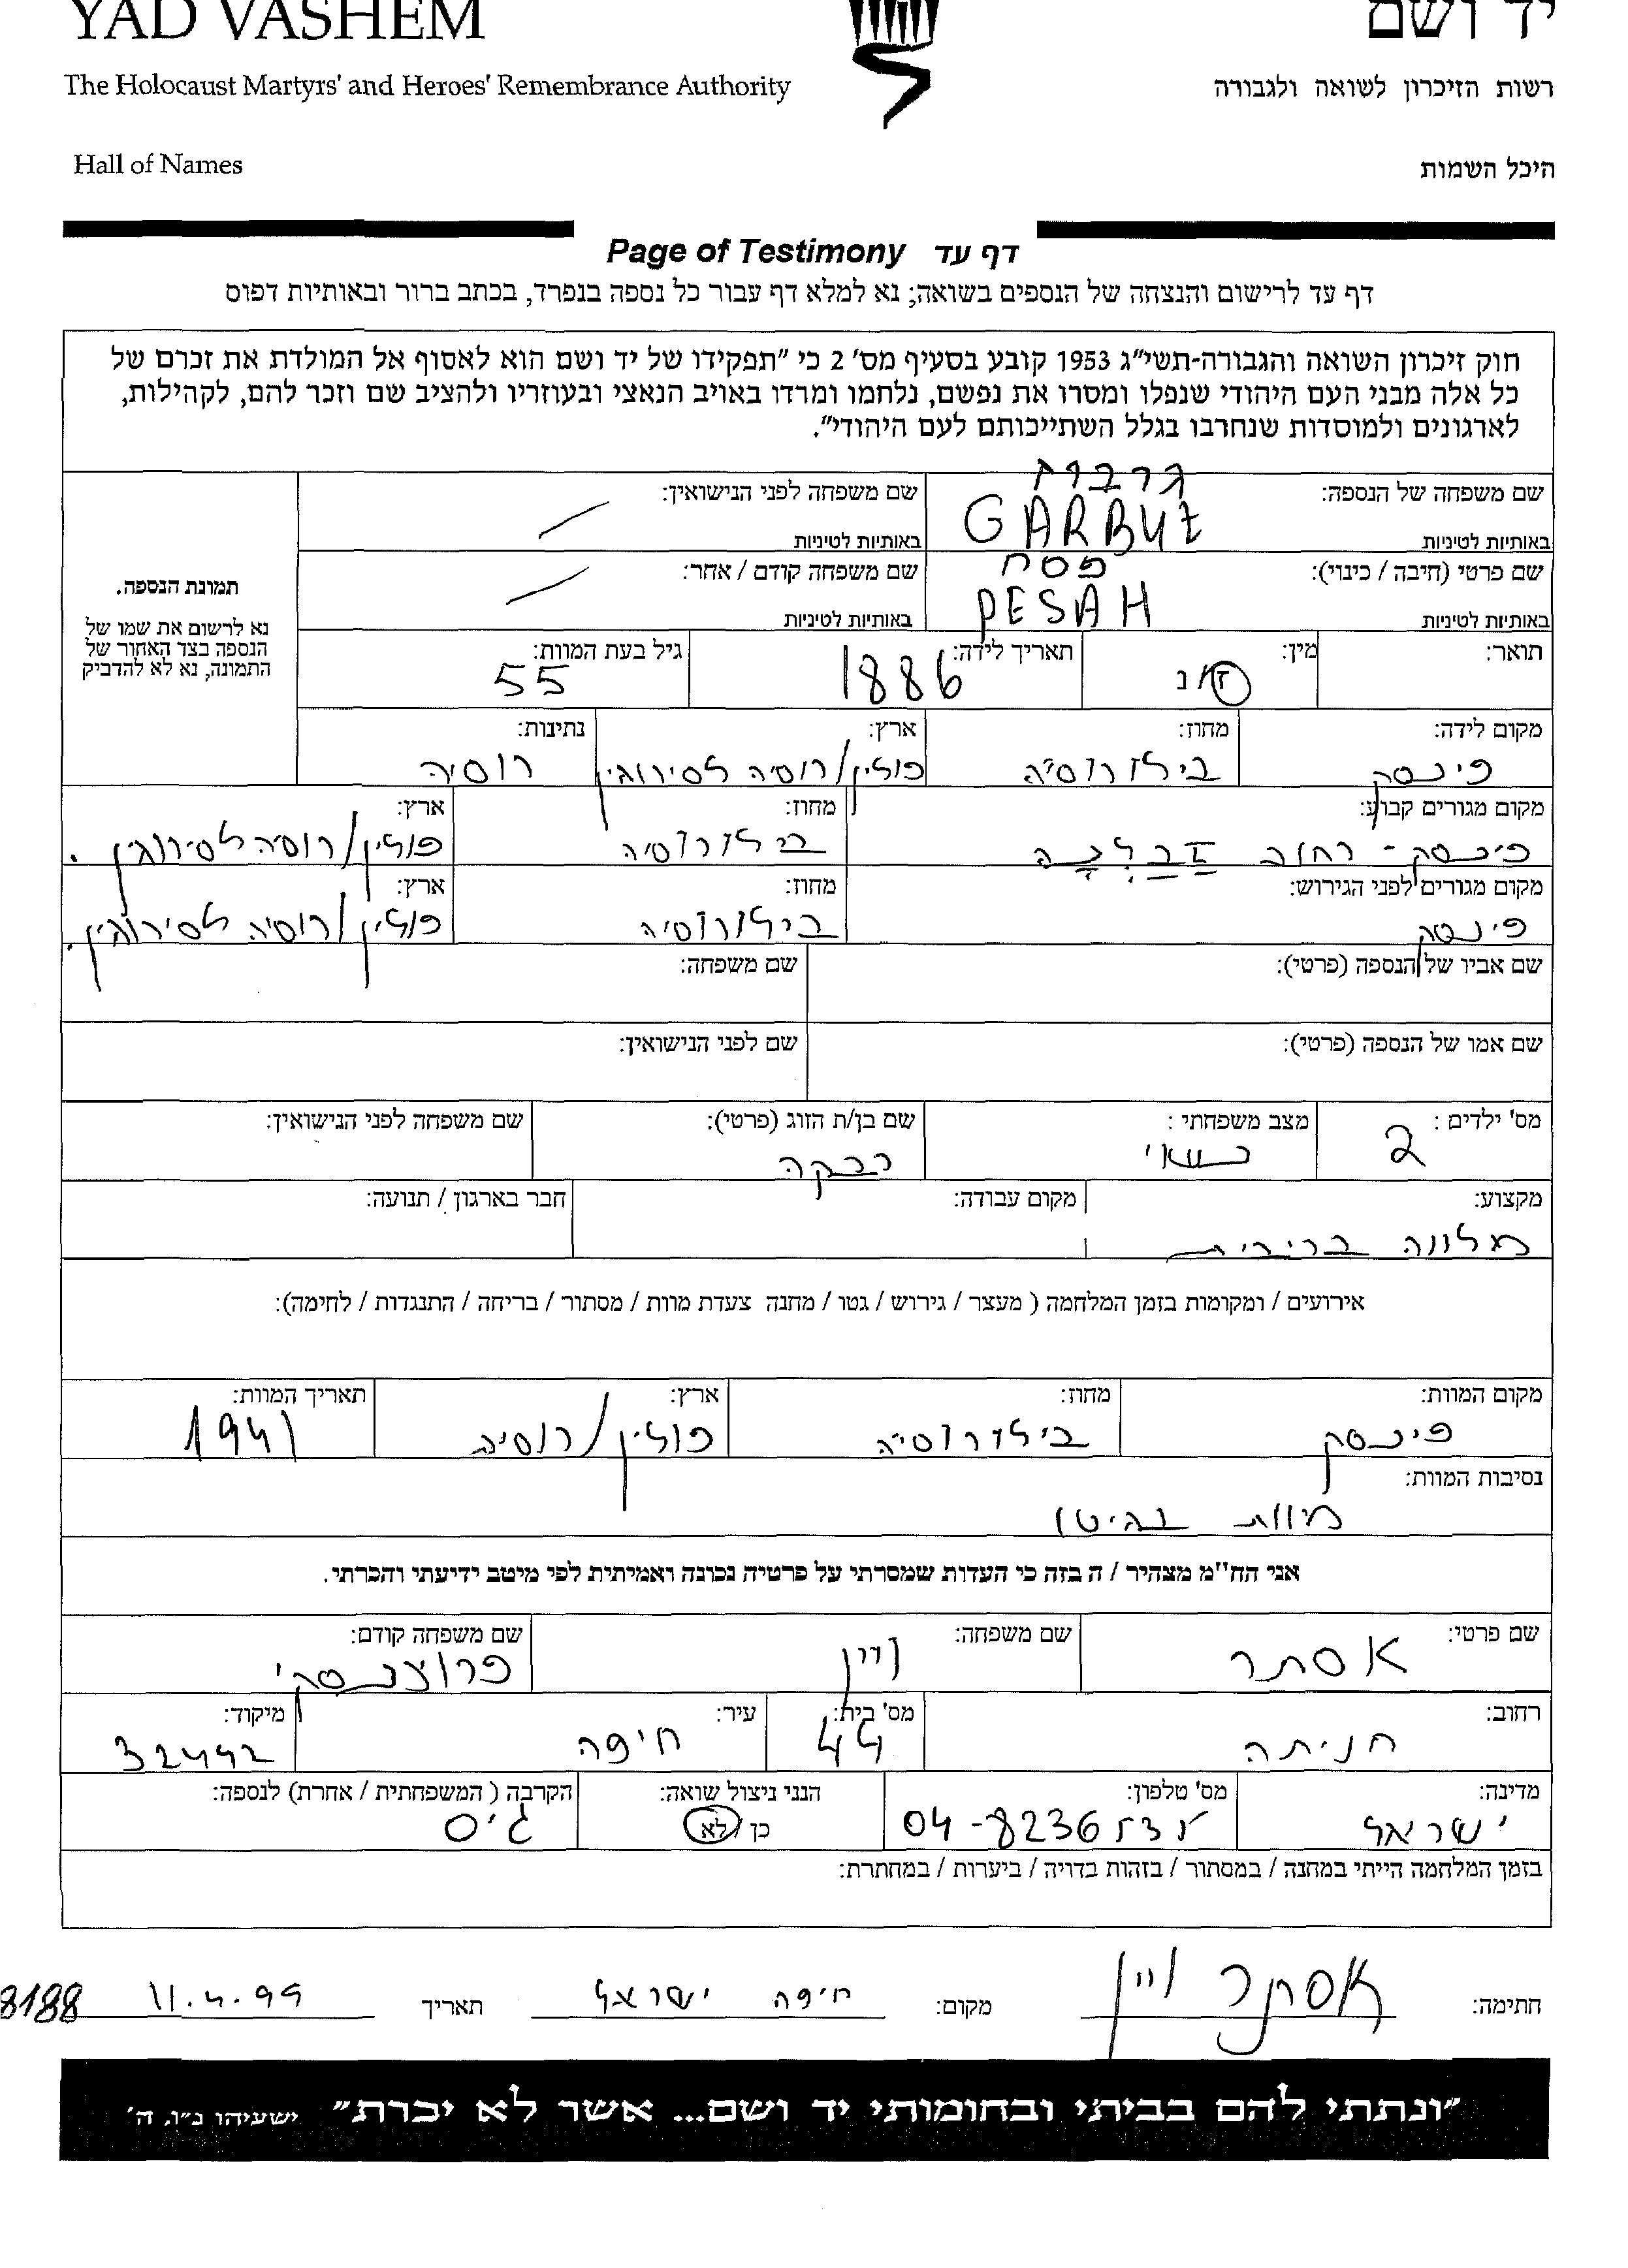 YAD VASHEM יד ושם
The Holocaust Martyrs' and Heroes' Remembrance Authority רשות הזיכרון לשואה ולגבורה
Hall of Names היכל השמות
Page of Testimony דף עד
דף עד לרישום והנצחה של הנספים בשואה; נא למלא דף עבור כל נספה בנפרד, בכתב ברור ובאותיות דפוס
חוק זיכרון השואה והגבורה-תשי"ג 1953 קובע בסעיף מס' 2 כי "תפקידו של יד ושם הוא לאסוף אל המולדת את זכרם של
כל אלה מבני העם היהודי שנפלו ומסרו את נפשם, נלחמו ומרדו באויב הנאצי ובעוזריו ולהציב שם וזכר להם, לקהילות,
לארגונים ולמוסדות שנחרבו בגלל השתייכותם לעם היהודי".
שם משפחה של הנספה: גרבוז שם משפחה לפני הנישואין:
באותיות לטיניות GARBUZ באותיות לטיניות
שם פרטי (חיבה / כינוי): פסח שם משפחה קודם / אחר:
באותיות לטיניות PESAH באותיות לטיניות
תמונת הנספה.
נא לרשום את שמו של
הנספה בצד האחור של
התמונה, נא לא להדביק
תואר: מין: ז/נ תאריך לידה: 1886 גיל בעת המוות: 55
מקום לידה: מחוז: ארץ: נתינות:
פינסק בילורוסיה פולין/רוסיה לסירוגין רוסיה
מקום מגורים קבוע: מחוז: ארץ:
פינסק - רחוב זבלנה בילורוסיה פולין/רוסיה לסירוגין.
מקום מגורים לפני הגירוש: מחוז: ארץ:
פינסק בילורוסיה פולין/רוסיה לסירוגין.
שם אביו של הנספה (פרטי): שם משפחה:
שם אמו של הנספה (פרטי): שם לפני הנישואין:
מס' ילדים: 2 מצב משפחתי: נשוי שם בן/ת הזוג (פרטי): רבקה שם משפחה לפני הנישואין:
מקצוע: מקום עבודה: חבר בארגון / תנועה:
מלווה בריבית
אירועים / ומקומות בזמן המלחמה ( מעצר / גירוש / גטו / מחנה צעדת מוות / מסתור / בריחה / התנגדות / לחימה):
מקום המוות: מחוז: ארץ: תאריך המוות:
פינסק בילורוסיה פולין/רוסיה 1941
נסיבות המוות:
מוות בגיטו
אני הח"מ מצהיר / ה בזה כי העדות שמסרתי על פרטיה נכונה ואמיתית לפי מיטב ידיעתי והכרתי.
שם פרטי: אסתר שם משפחה: ויין שם משפחה קודם: פרוצנסקי
רחוב: חניתה מס' בית: 44 עיר: חיפה מיקוד: 32442
מדינה: מס' טלפון: הנני ניצול שואה: הקרבה ( המשפחתית / אחרת) לנספה:
ישראל 04-8236535 כן / לא גיס
בזמן המלחמה הייתי במחנה / במסתור / בזהות בדויה / ביערות / במחתרת:
חתימה: אסתר ויין מקום: חיפה ישראל תאריך 11.4.99 8188
"ונתתי להם בביתי ובחומותי יד ושם... אשר לא יכרת" ישעיהו נ"ו, ה'